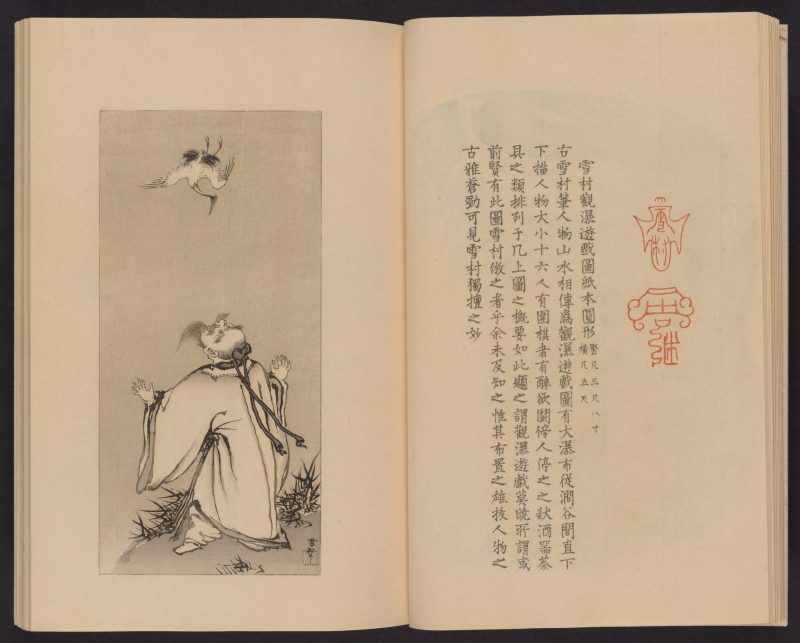 雪村
雪村觀瀑遊戲圖紙本圓形
竪凡三尺八寸
橫凡五尺
右雪村筆人物山水相傳爲觀瀑遊戲圖有大瀑布從澗谷間直下
下描人物大小十六人有圍棋者有醉欲鬪傍人停之之狀酒器茶
具之類排列于几上圖之概要如此題之謂觀瀑遊戲莫曉所謂或
前賢有此圖雪村倣之者乎余未及知之惟其布置之雄拔人物之
古雅蒼勁可見雪村獨擅之妙